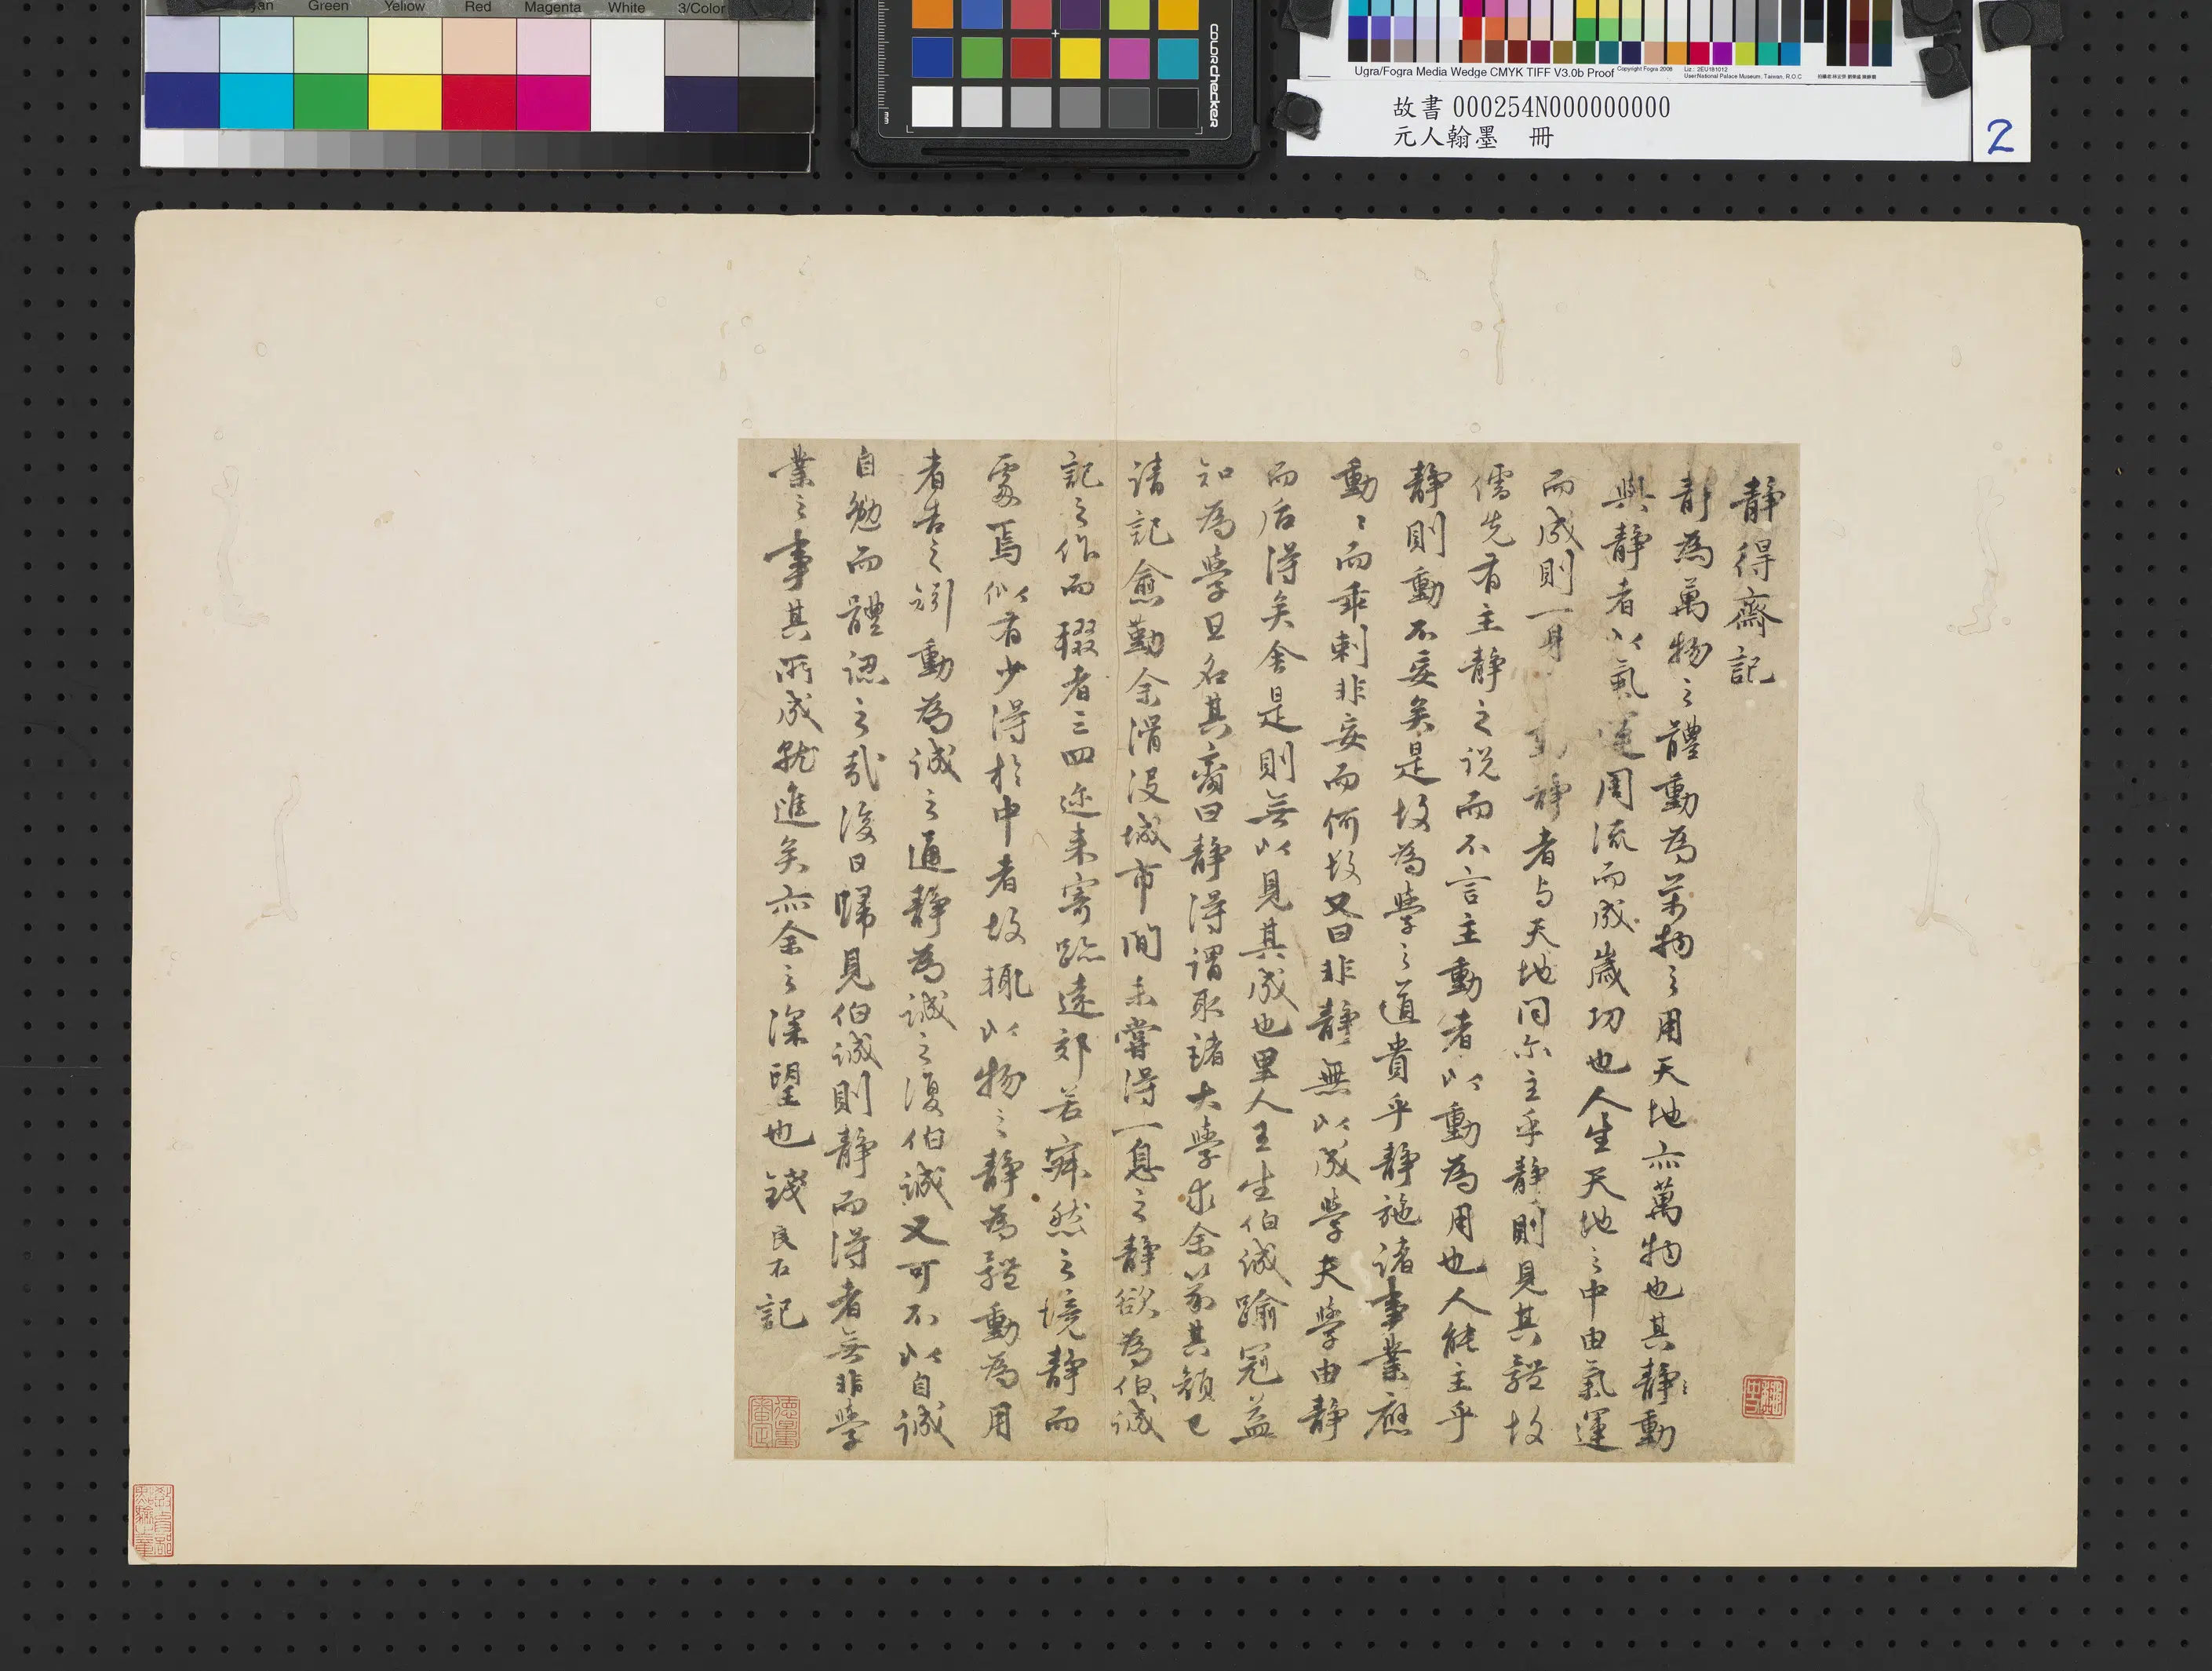 Green
Yellow
Red
Magenta
White
3/Color
mm
colorchecker
Ugra/Fogra Media Wedge CMYK TIFF V3.0b Proof
Copyright Fogra 2008
Liz.: 2EU181012
User:National Palace Museum, Taiwan, R.O.C
故書 000254N000000000
元人翰墨 冊
2
靜得齋記
靜為萬物之體動為萬物之用天地亦萬物也其靜〻動
與靜者以氣運周流而成歲功也人生天地之中由氣運
而成則一身動靜者与天地同尔主乎靜則見其體故
儒先有主靜之说而不言主動者以動為用也人能主乎
靜則動不妄矣是故為學之道貴乎靜施諸事業應
動〻而乖剌非妄而何故又曰非靜無以成學夫學由靜
而后得矣舍是則無以見其成也里人王生伯誠踰冠益
知為學且名其齋曰靜得謂取諸大學求余篆其顏已
請記愈勤余滑沒城市間未嘗得一息之靜欲為伯誠
記之作而輟者三四迩来寄跡遠郊若寂然之境靜而
處焉似有少得於中者故輒以物之靜為體動為用
者告之矧動為誠之通靜為誠之復伯誠又可不以自誠
自勉而體認之哉後日歸見伯誠則靜而得者無非學
業之事其所成就進矣亦余之深望也錢良右記
德量審定